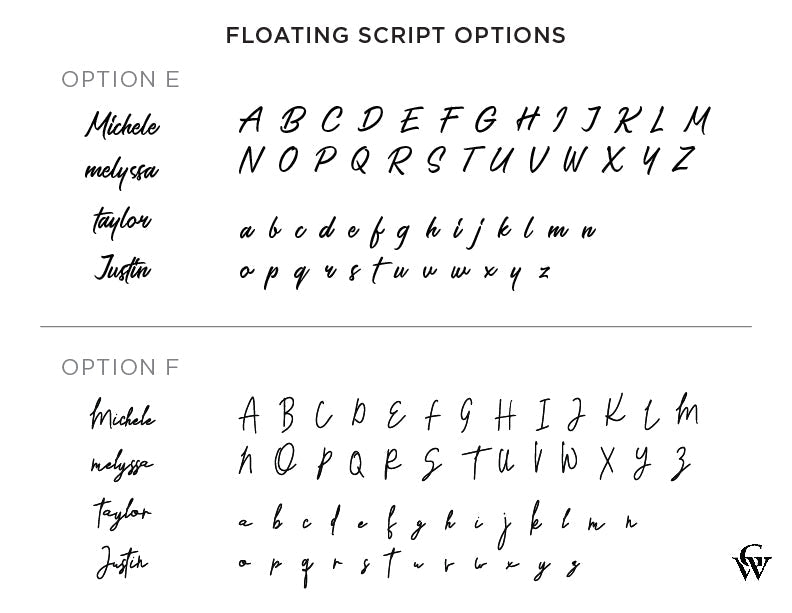 FLOATING SCRIPT OPTIONS
OPTION E
Michele
melyssa
taylor
Justin
A B C D E F G H I J K L M
N O P Q R S T U V W X Y Z
a b c d e f g h i j k l m n
o p q r s t u v w x y z
OPTION F
Michele
melyssa
Taylor
Justin
A B C D E F G H I J K L M
N O P Q R S T U V W X Y Z
a b c d e f g h i j k l m n
o p q r s t u v w x y z
GW